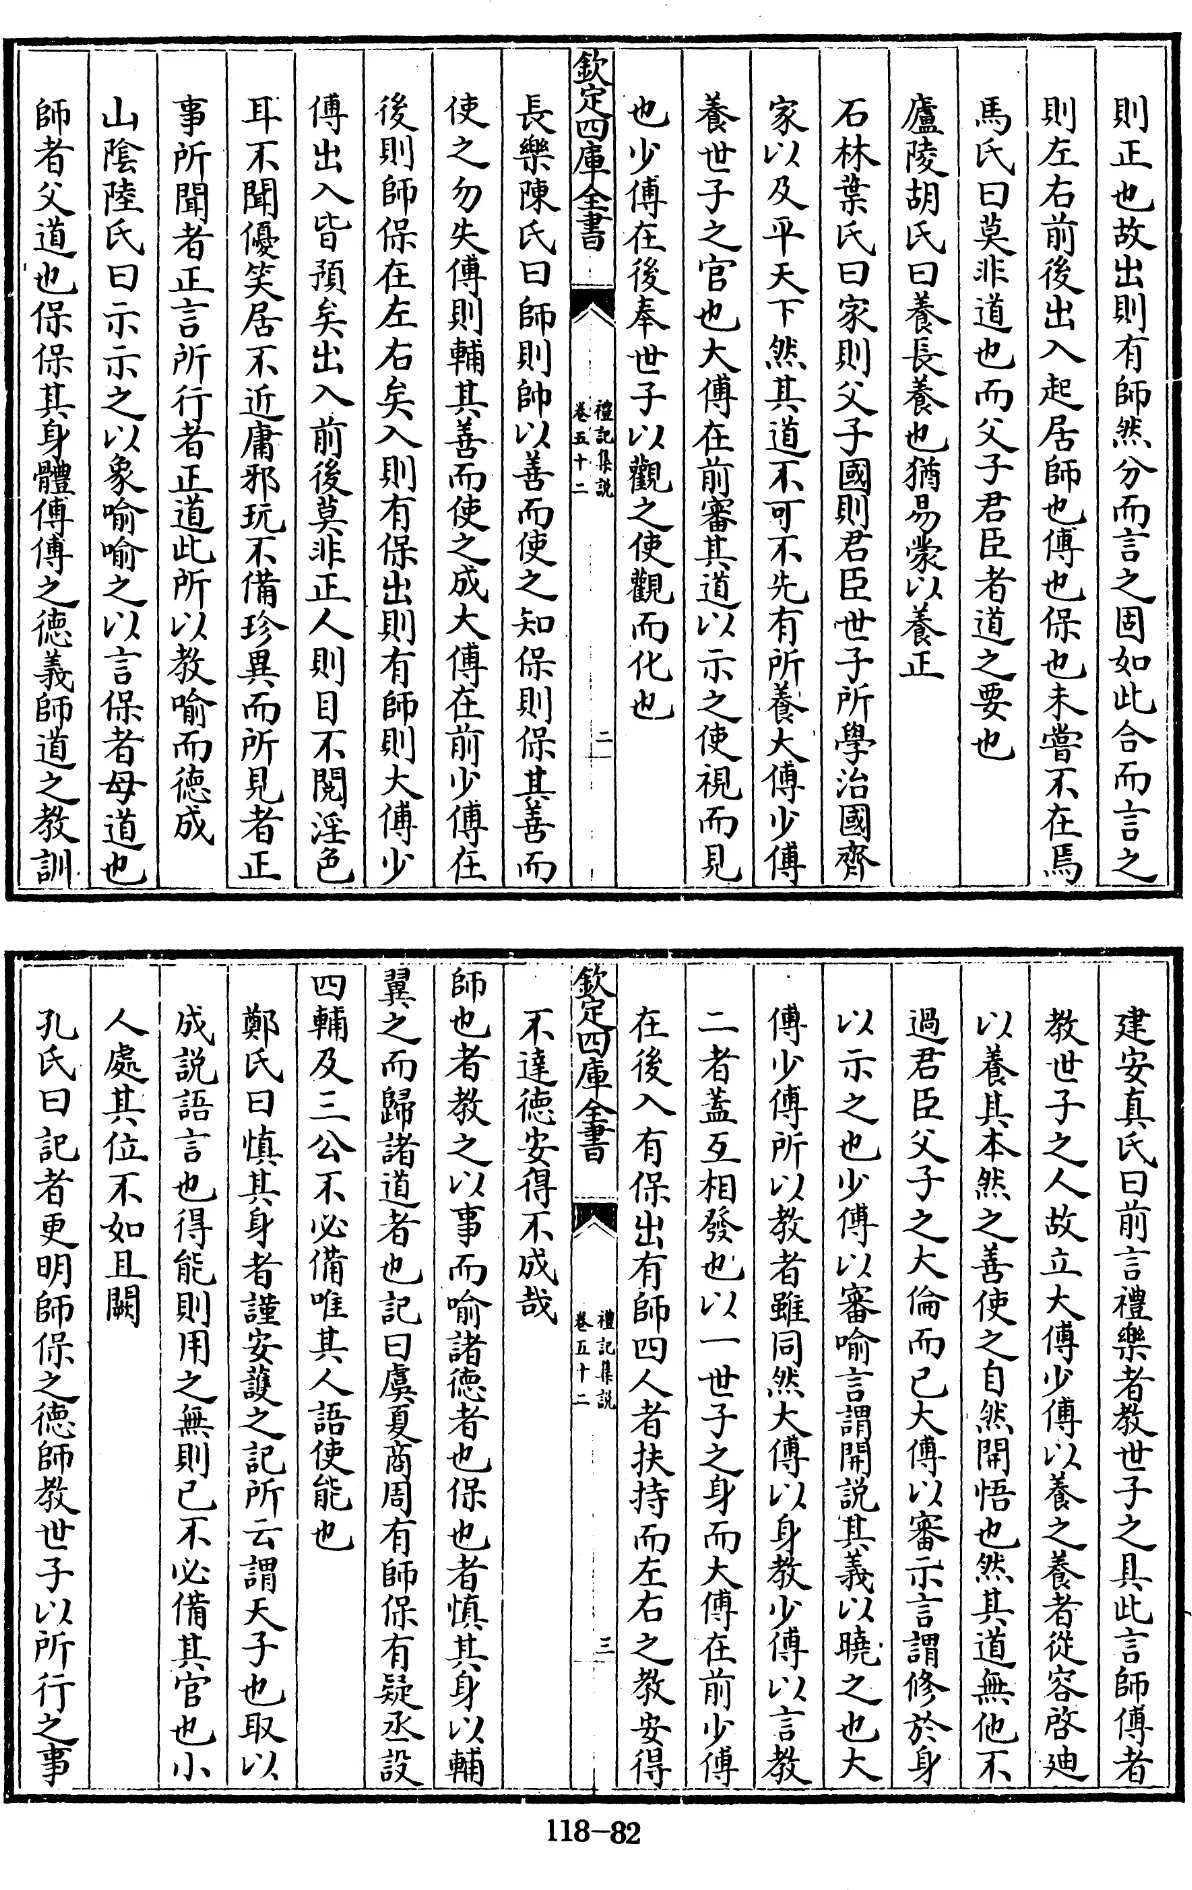 則正也故出則有師然分而言之固如此合而言之
則左右前後出入起居師也傅也保也未嘗不在焉
馬氏曰莫非道也而父子君臣者道之要也
廬陵胡氏曰養長養也猶易蒙以養正
石林葉氏曰家則父子國則君臣世子所學治國齊
家以及平天下然其道不可不先有所養大傅少傅
養世子之官也大傅在前審其道以示之使視而見
也少傅在後奉世子以觀之使觀而化也
欽定四庫全書
禮記集説
卷五十二
二
長樂陳氏曰師則帥以善而使之知保則保其善而
使之勿失傅則輔其善而使之成大傅在前少傅在
後則師保在左右矣入則有保出則有師則大傅少
傅出入皆預矣出入前後莫非正人則目不閱淫色
耳不聞優笑居不近庸邪玩不備珍異而所見者正
事所聞者正言所行者正道此所以教喻而德成
山陰陸氏曰示示之以象喻喻之以言保者母道也
師者父道也保保其身體傅傅之德義師道之教訓
建安真氏曰前言禮樂者教世子之具此言師傅者
教世子之人故立大傅少傅以養之養者從容啓迪
以養其本然之善使之自然開悟也然其道無他不
過君臣父子之大倫而已大傅以審示言謂修於身
以示之也少傅以審喻言謂開説其義以曉之也大
傅少傅所以教者雖同然大傅以身教少傅以言教
二者蓋互相發也以一世子之身而大傅在前少傅
在後入有保出有師四人者扶持而左右之教安得
欽定四庫全書
禮記集説
卷五十二
三
不達德安得不成哉
師也者教之以事而喻諸德者也保也者慎其身以輔
翼之而歸諸道者也記曰虞夏商周有師保有疑丞設
四輔及三公不必備唯其人語使能也
鄭氏曰慎其身者謹安護之記所云謂天子也取以
成説語言也得能則用之無則已不必備其官也小
人處其位不如且闕
孔氏曰記者更明師保之德師教世子以所行之事
118-82